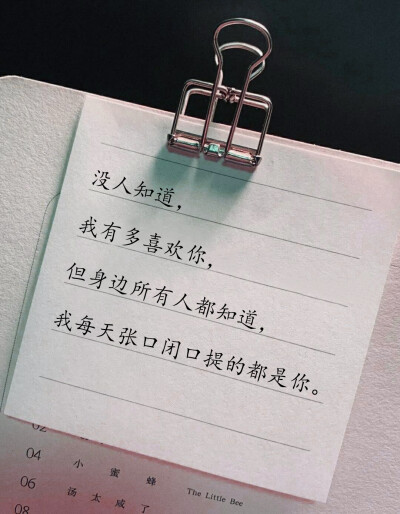 没人知道，
我有多喜欢你，
但身边所有人都知道，
我每天张口闭口提的都是你。
02
04 小蜜蜂 The Little Bee
06 汤太咸了
08